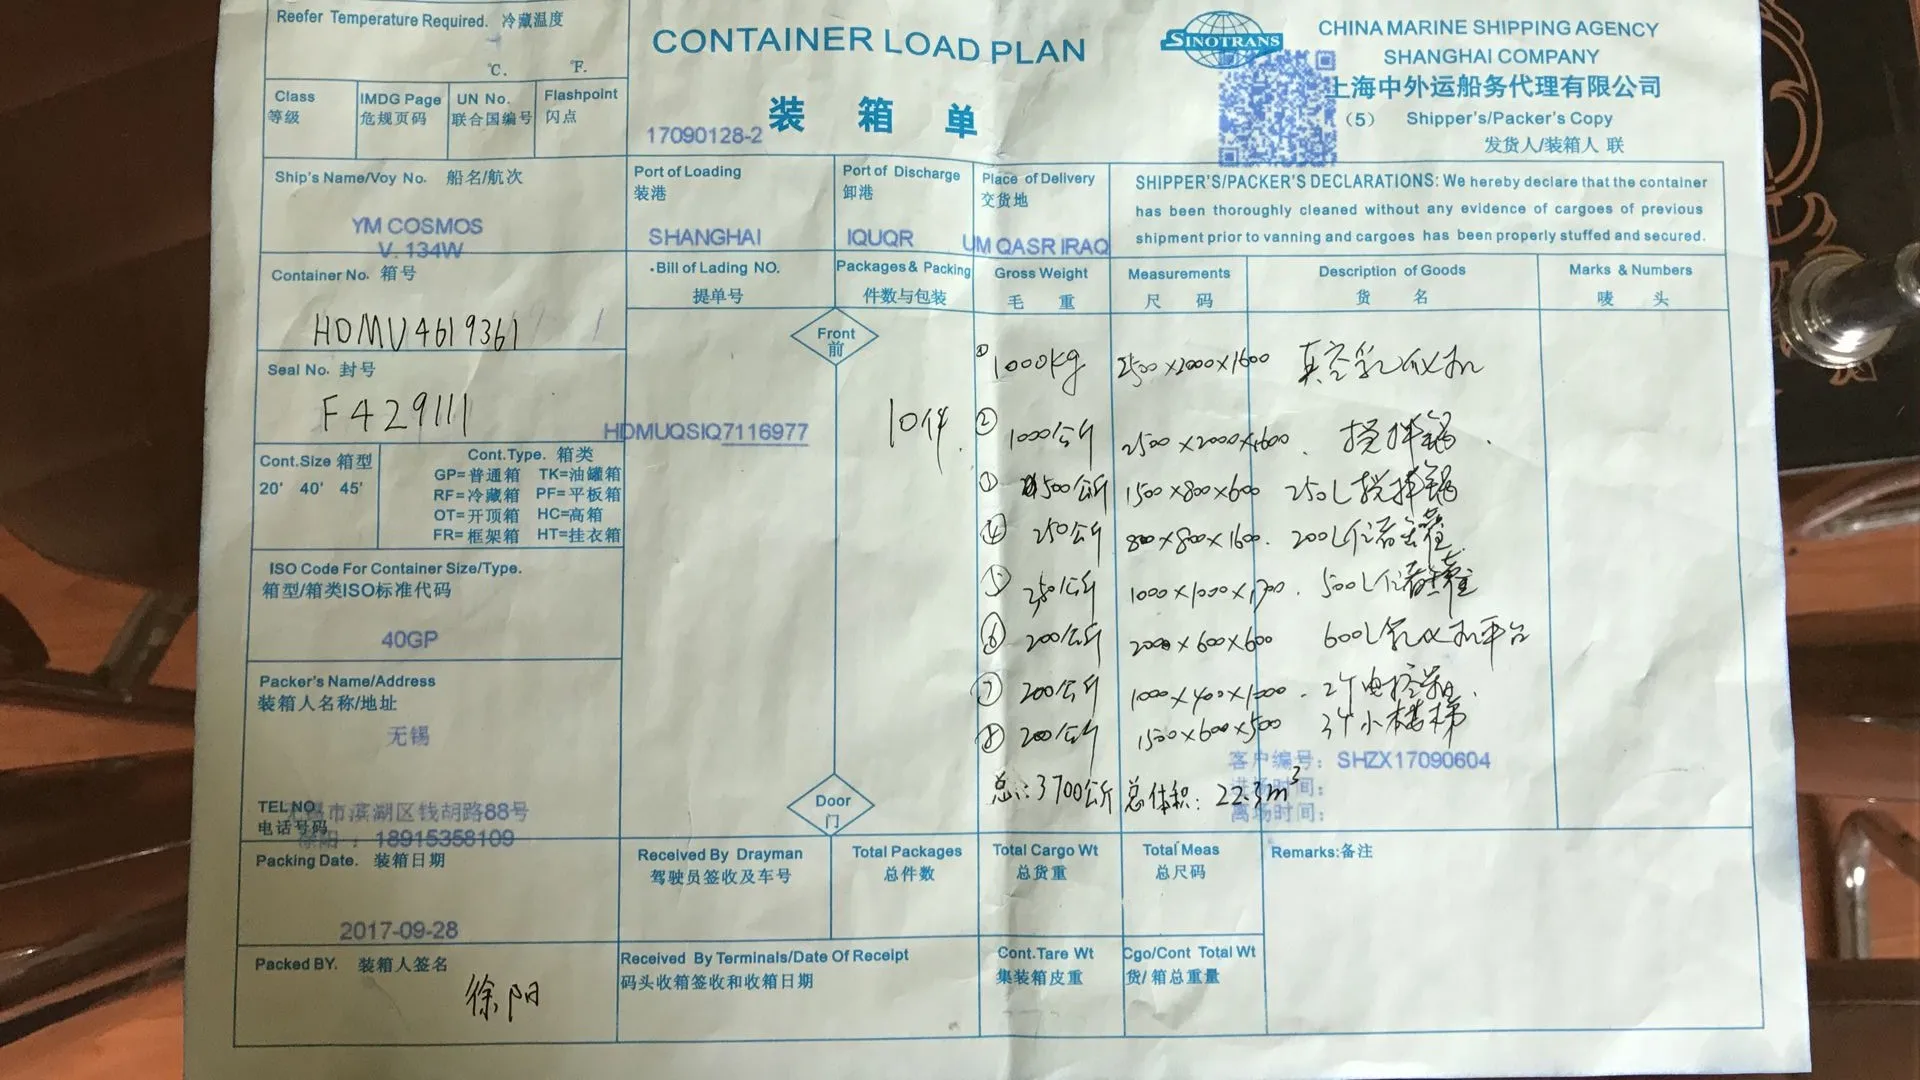 Reefer Temperature Required. 冷藏温度
℃. ℉.
CONTAINER LOAD PLAN
装 箱 单
17090128-2
SINOTRANS
CHINA MARINE SHIPPING AGENCY
SHANGHAI COMPANY
上海中外运船务代理有限公司
(5) Shipper's/Packer's Copy
发货人/装箱人 联
Class 等级
IMDG Page 危规页码
UN No. 联合国编号
Flashpoint 闪点
Ship's Name/Voy No. 船名/航次
YM COSMOS
V. 134W
Port of Loading 装港
SHANGHAI
Port of Discharge 卸港
IQUQR
Place of Delivery 交货地
UM QASR IRAQ
SHIPPER'S/PACKER'S DECLARATIONS: We hereby declare that the container
has been thoroughly cleaned without any evidence of cargoes of previous
shipment prior to vanning and cargoes has been properly stuffed and secured.
Container No. 箱号
HDMU4619361
Seal No. 封号
F429111
Cont.Size 箱型
20' 40' 45'
Cont.Type. 箱类
GP=普通箱 TK=油罐箱
RF=冷藏箱 PF=平板箱
OT=开顶箱 HC=高箱
FR=框架箱 HT=挂衣箱
ISO Code For Container Size/Type.
箱型/箱类ISO标准代码
40GP
Packer's Name/Address
装箱人名称/地址
无锡
TEL NO.
电话号码
无锡市滨湖区钱胡路88号
徐阳 : 18915358109
Packing Date. 装箱日期
2017-09-28
Packed BY. 装箱人签名
徐阳
Bill of Lading NO.
提单号
HDMUQSIQ7116977
Front
前
Door
门
Packages & Packing
件数与包装
10件
Gross Weight 毛 重
Measurements 尺 码
Description of Goods 货 名
Marks & Numbers 唛 头
① 1000kg 2500×2000×1600 真空乳化机
② 1000公斤 2500×2000×1600. 搅拌锅.
③ 500公斤 1500×800×600 250L搅拌锅
④ 250公斤 800×800×1600. 200L储罐
⑤ 250公斤 1000×1000×1700. 500L储罐
⑥ 200公斤 2000×600×600 600L乳化机平台
⑦ 200公斤 1000×400×1000. 2个电控箱.
⑧ 200公斤 1500×600×500 3个小楼梯
总:3700公斤 总体积:22.3m³
客户编号: SHZX17090604
进场时间:
离场时间:
Received By Drayman
驾驶员签收及车号
Total Packages
总件数
Total Cargo Wt
总货重
Total Meas
总尺码
Remarks:备注
Received By Terminals/Date Of Receipt
码头收箱签收和收箱日期
Cont.Tare Wt
集装箱皮重
Cgo/Cont Total Wt
货/箱总重量